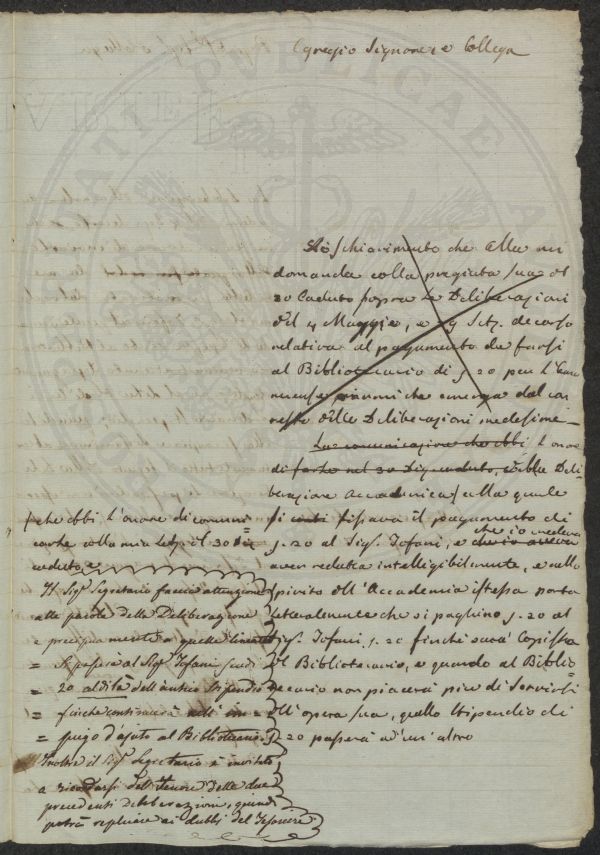 Egregio Signore e Collega
A schiarimento che Ella mi
domanda colla pregiata sua del
20 Caduto sopra le Deliberazioni
del 4 Maggio, e 9 Set. decorso
relativa al pagamento da farsi
al Bibliotecario di s. 20 per l'
emerge dal con
testo delle Deliberazioni medesime
La comunicazione che ebbi l'onore
di farle nel 30 caduto, della Deli
berazione Accademica alla quale
si fissava il pagamento di
s. 20 al Sig. Tofani, e che io credeva
aver redatta intelligibilmente, e nello
spirito dell'Accademia istessa porta
letteralmente che si paghino s. 20 al
Sig. Tofani, s. 20 finchè sarà Copista
del Bibliotecario, e quando al Biblio=
tecario non piacerà più di servirsi
dell'opera sua, quello stipendio di
s. 20 passerà ad un altro
che ebbi l'onore di comuni=
carle colla mia del 30
caduto
Il Sig. Segretario faccia attenzione
alle parole della Deliberazione
e precipuamente a quelle
= Si passerà al Sig. Tofani scudi
= 20 al di là dell'antico stipendio
= finchè continuerà nell'im=
= piego d'ajuto al Bibliotecario.
Inoltre il Sig. Segretario è invitato
a ricordarsi del tenore delle due
precedenti deliberazioni, quindi
potrà replicare ai dubbi del Tesoriere.